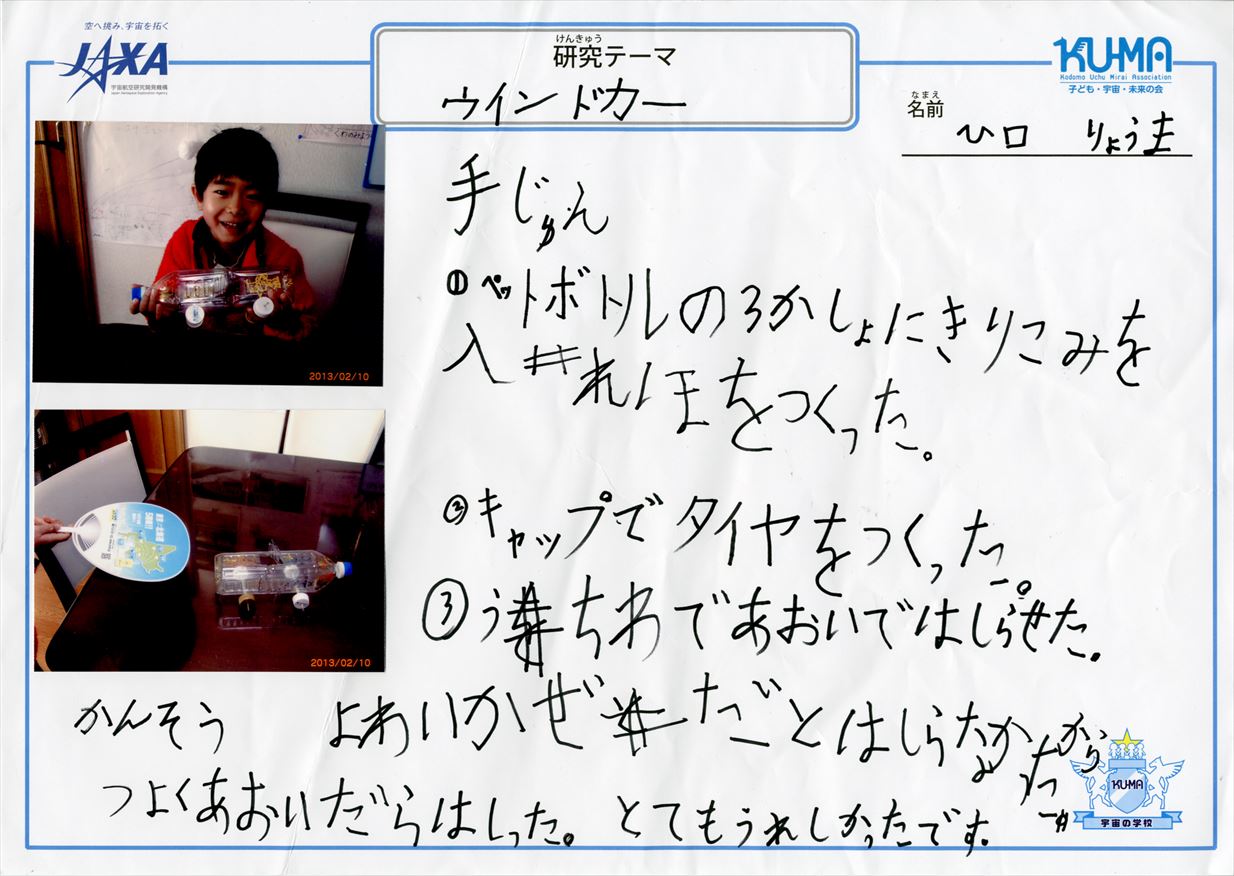 空へ挑み、宇宙を拓く
JAXA
宇宙航空研究開発機構
Japan Aerospace Exploration Agency
けんきゅう
研究テーマ
ウインドカー
KU-MA
Kodomo Uchu Mirai Association
子ども・宇宙・未来の会
なまえ
名前
ひ口 りょう圭
2013/02/10
手じゅん
① ペットボトルの3かしょにきりこみを
入れ ほをつくった。
② キャップでタイヤをつくった。
③ うちわであおいではしらせた。
2013/02/10
かんそう よわいかぜだとはしらなかったから
つよくあおいだらはしった。とてもうれしかったです。
KUMA
宇宙の学校